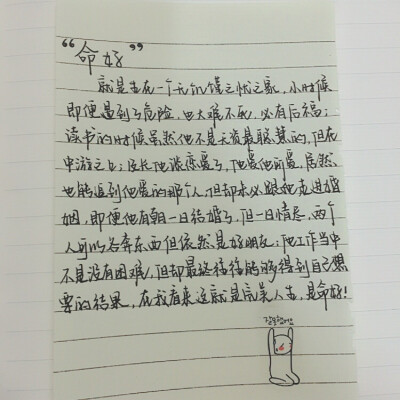 “命好”
就是生在一个无饥馑之忧之家,小时候
即便遇到了危险,也大难不死,必有后福;
读书的时候虽然他不是天资最聪慧的,但在
中游之上;成长他谈恋爱了,他爱他所爱,居然
也能追到他爱的那个人,但却未必跟她走进婚
姻,即便他有朝一日结婚了,但一旦情尽,两个
人可以各奔东西但依然是好朋友;他工作当中
不是没有困难,但却最终往往能够得到自己想
要的结果,在我看来这就是完美人生,是命好!